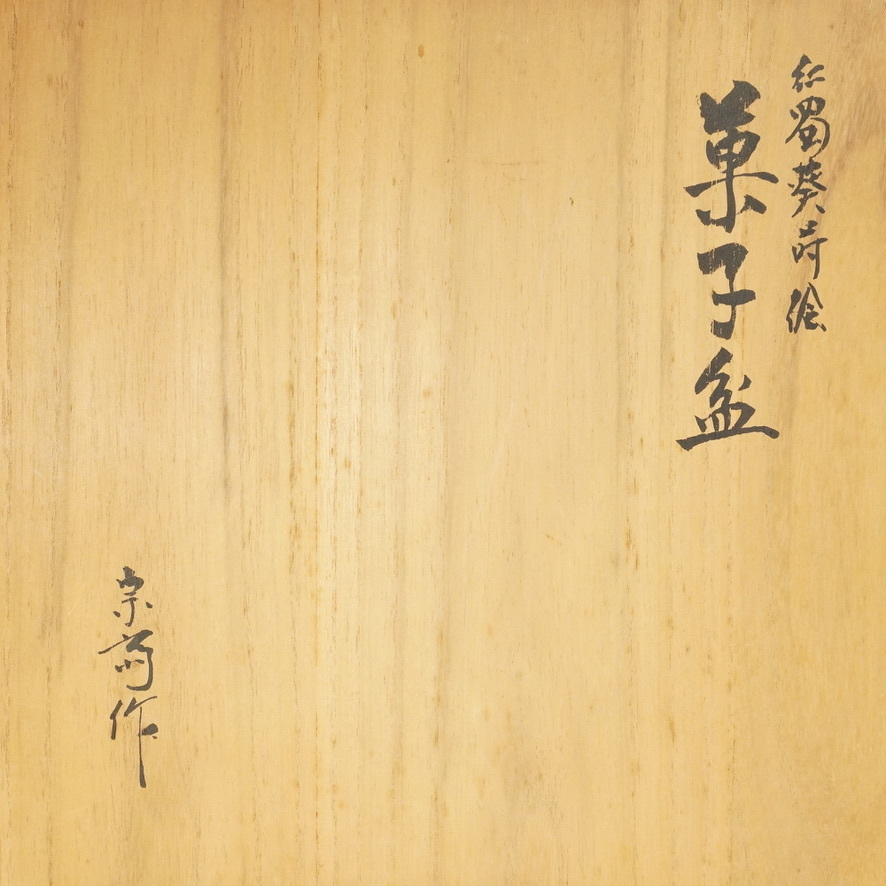 仁蜀葵蒔絵
菓子盆
宗斎作